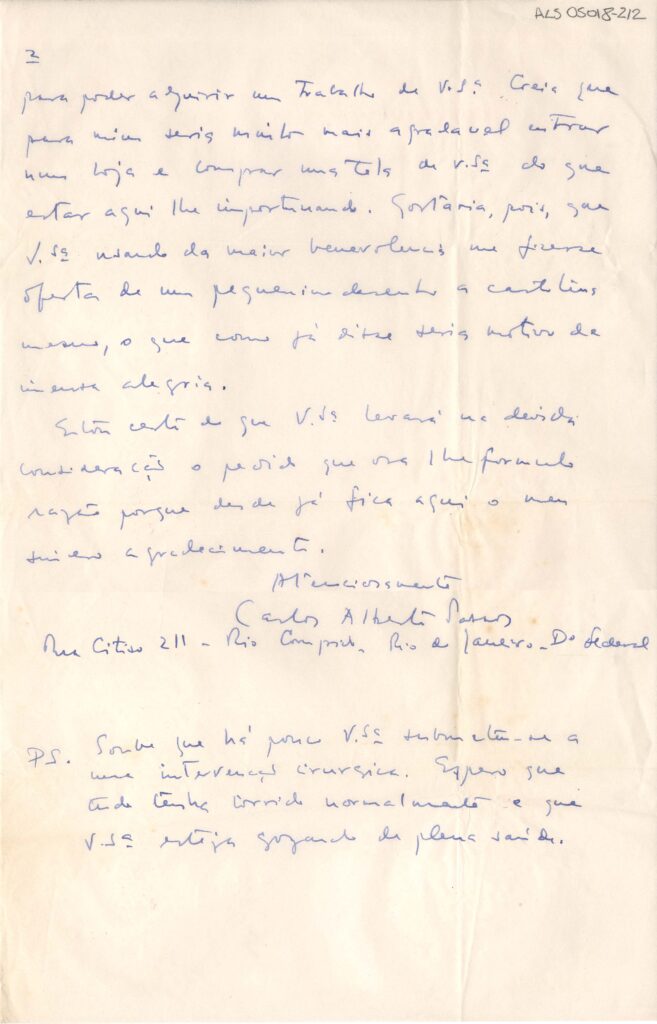 ALS 05018-2/2
2
para poder adquirir um trabalho de V.Sª Creia que
para mim seria muito mais agradavel entrar
num loja e comprar uma tela de V.Sª do que
estar aqui lhe importunando. Gostaria, pois, que
V.Sª usando da maior benevolencia me fizesse
oferta de um pequenino desenho a cartolina
mesmo, o que como já disse seria motivo de
imensa alegria.
Estou certo de que V.Sª levará na devida
consideração o pedido que ora lhe formulo
razão porque desde já fica aqui o meu
sincero agradecimento.
Atenciosamente
Carlos Alberto Passos
Rua Citiso 211 - Rio Comprido - Rio de Janeiro - Do Federal
PS. Soube que há pouco V.Sª submeteu-se a
uma intervenção cirurgica. Espero que
tudo tenha corrido normalmente e que
V.Sª esteja gozando de plena saúde.